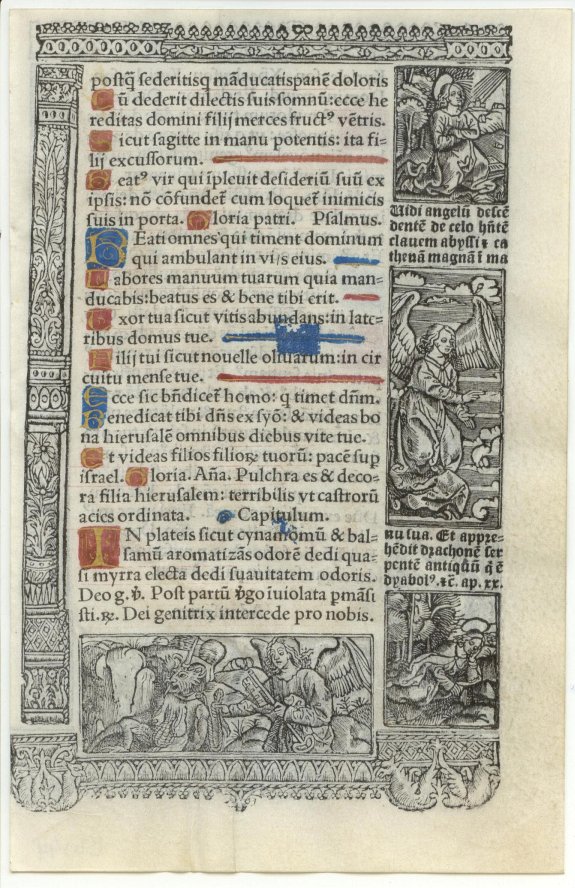 postq̃ sederitisq mãducatispanẽ doloris
Cũ dederit dilectis suis somnũ: ecce he
reditas domini filij merces fructꝰ vẽtris.
Sicut sagitte in manu potentis: ita fi-
lij excussorum.
Beatꝰ vir qui ĩpleuit desideriũ suũ ex
ipsis: nõ cõfundet̃ cum loquet̃ inimicis
suis in porta. Gloria patri. Psalmus.
BEati omnes qui timent dominum
qui ambulant in vijs eius.
Labores manuum tuarum quia man-
ducabis: beatus es & bene tibi erit.
Uxor tua sicut vitis abundans: in late-
ribus domus tue.
Filij tui sicut nouelle oliuarum: in cir
cuitu mense tue.
Ecce sic bñdicet̃ homo: q timet dñm.
Benedicat tibi dñs ex syõ: & videas bo
na hierusalẽ omnibus diebus vite tue.
Et videas filios filioꝝ tuorũ: pacẽ sup
israel. Gloria. Aña. Pulchra es & deco-
ra filia hierusalem: terribilis vt castrorũ
acies ordinata. Capitulum.
IN plateis sicut cynamomũ & bal-
samũ aromatizãs odorẽ dedi qua-
si myrra electa dedi suauitatem odoris.
Deo g. ℣. Post partũ ṽgo iuiolata pmãsi
sti. ℟. Dei genitrix intercede pro nobis.
Uidi angelũ descẽ
dentẽ de celo hñtẽ
clauem abyssi ⁊ ca
thenã magnã ĩ ma
nu sua. Et appre-
hẽdit drachonẽ ser
pentẽ antiquũ q ẽ
dyabolꝰ. ⁊c̃. ap. xx.